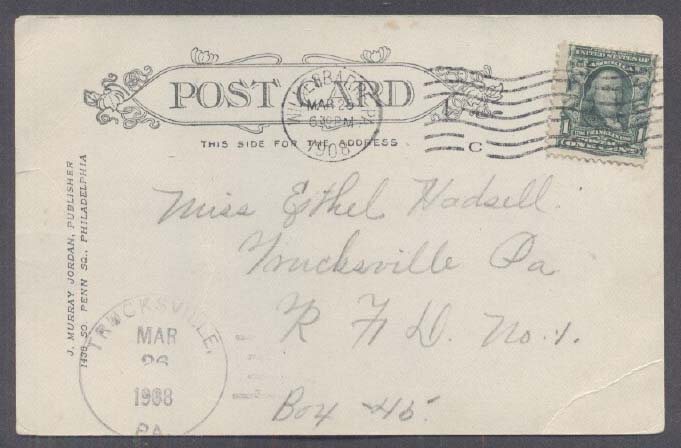 POST CARD
WILKES-BARRE, PA.
MAR 25
6 30 PM
1908
C
UNITED STATES OF
AMERICA
1 1
ONE CENT
THIS SIDE FOR THE ADDRESS
J. MURRAY JORDAN, PUBLISHER
1438 SO. PENN SQ., PHILADELPHIA
Miss Ethel Hadsell.
Trucksville Pa
R F D. No. 1.
Box 45.
TRUCKSVILLE,
MAR
26
1908
PA.